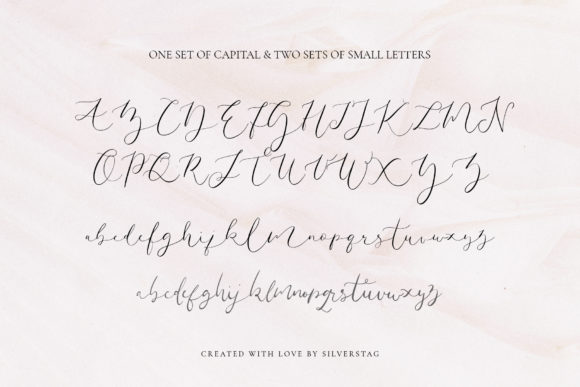 ONE SET OF CAPITAL & TWO SETS OF SMALL LETTERS
A B C D E F G H I J K L M N
O P Q R S T U V W X Y Z
a b c d e f g h i j k l m n o p q r s t u v w x y z
a b c d e f g h i j k l m n o p q r s t u v w x y z
CREATED WITH LOVE BY SILVERSTAG